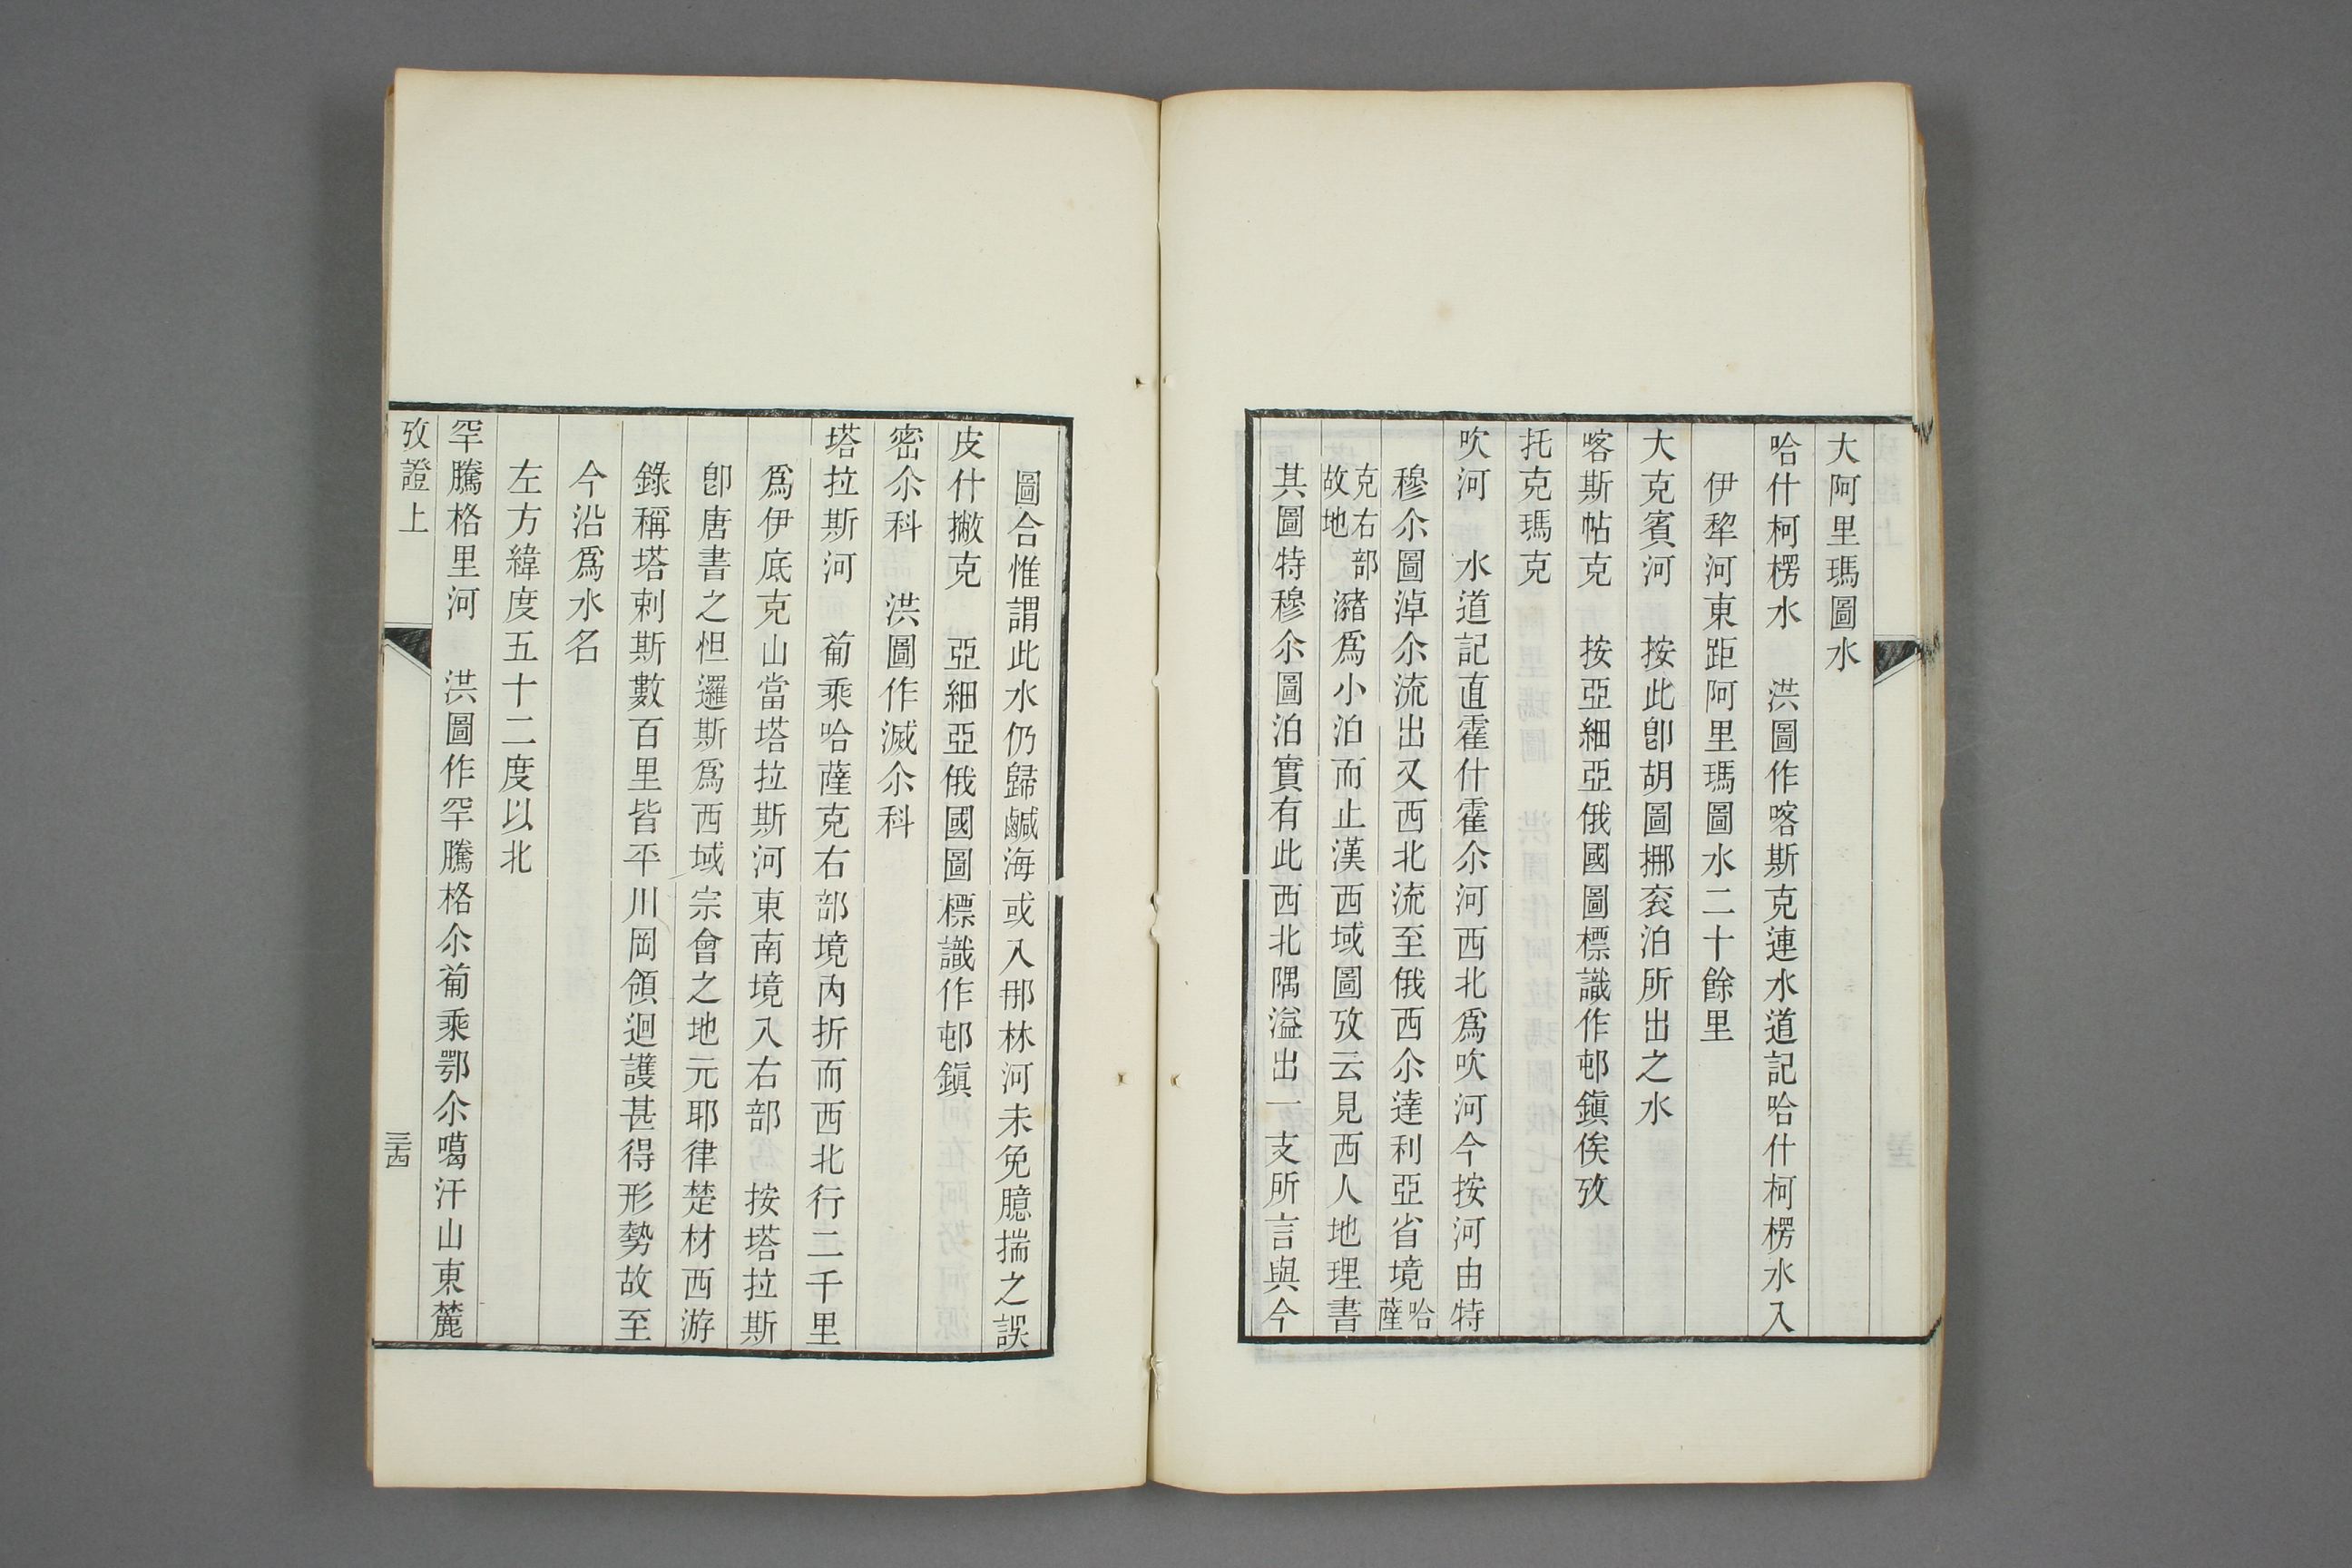 大阿里瑪圖水
哈什柯楞水　洪圖作喀斯克連水道記哈什柯楞水入
伊犂河東距阿里瑪圖水二十餘里
大克賓河　按此卽胡圖挪袞泊所出之水
喀斯帖克　按亞細亞俄國圖標識作邨鎭俟攷
托克瑪克
吹河　水道記直霍什霍尒河西北爲吹河今按河由特
穆尒圖淖尒流出又西北流至俄西尒達利亞省境哈薩
克右部故地部瀦爲小泊而止漢西域圖攷云見西人地理書
其圖特穆尒圖泊實有此西北隅溢出一支所言與今
圖合惟謂此水仍歸鹹海或入那林河未免臆揣之誤
皮什撇克　亞細亞俄國圖標識作邨鎭
密尒科　洪圖作滅尒科
塔拉斯河　葡乘哈薩克右部境內折而西北行二千里
爲伊底克山當塔拉斯河東南境入右部　按塔拉斯
卽唐書之怛邏斯爲西域宗會之地元耶律楚材西游
錄稱塔剌斯數百里皆平川岡領迴護甚得形勢故至
今沿爲水名
左方緯度五十二度以北
罕騰格里河　洪圖作罕騰格尒葡乘鄂尒噶汗山東麓
攷證上
三十四